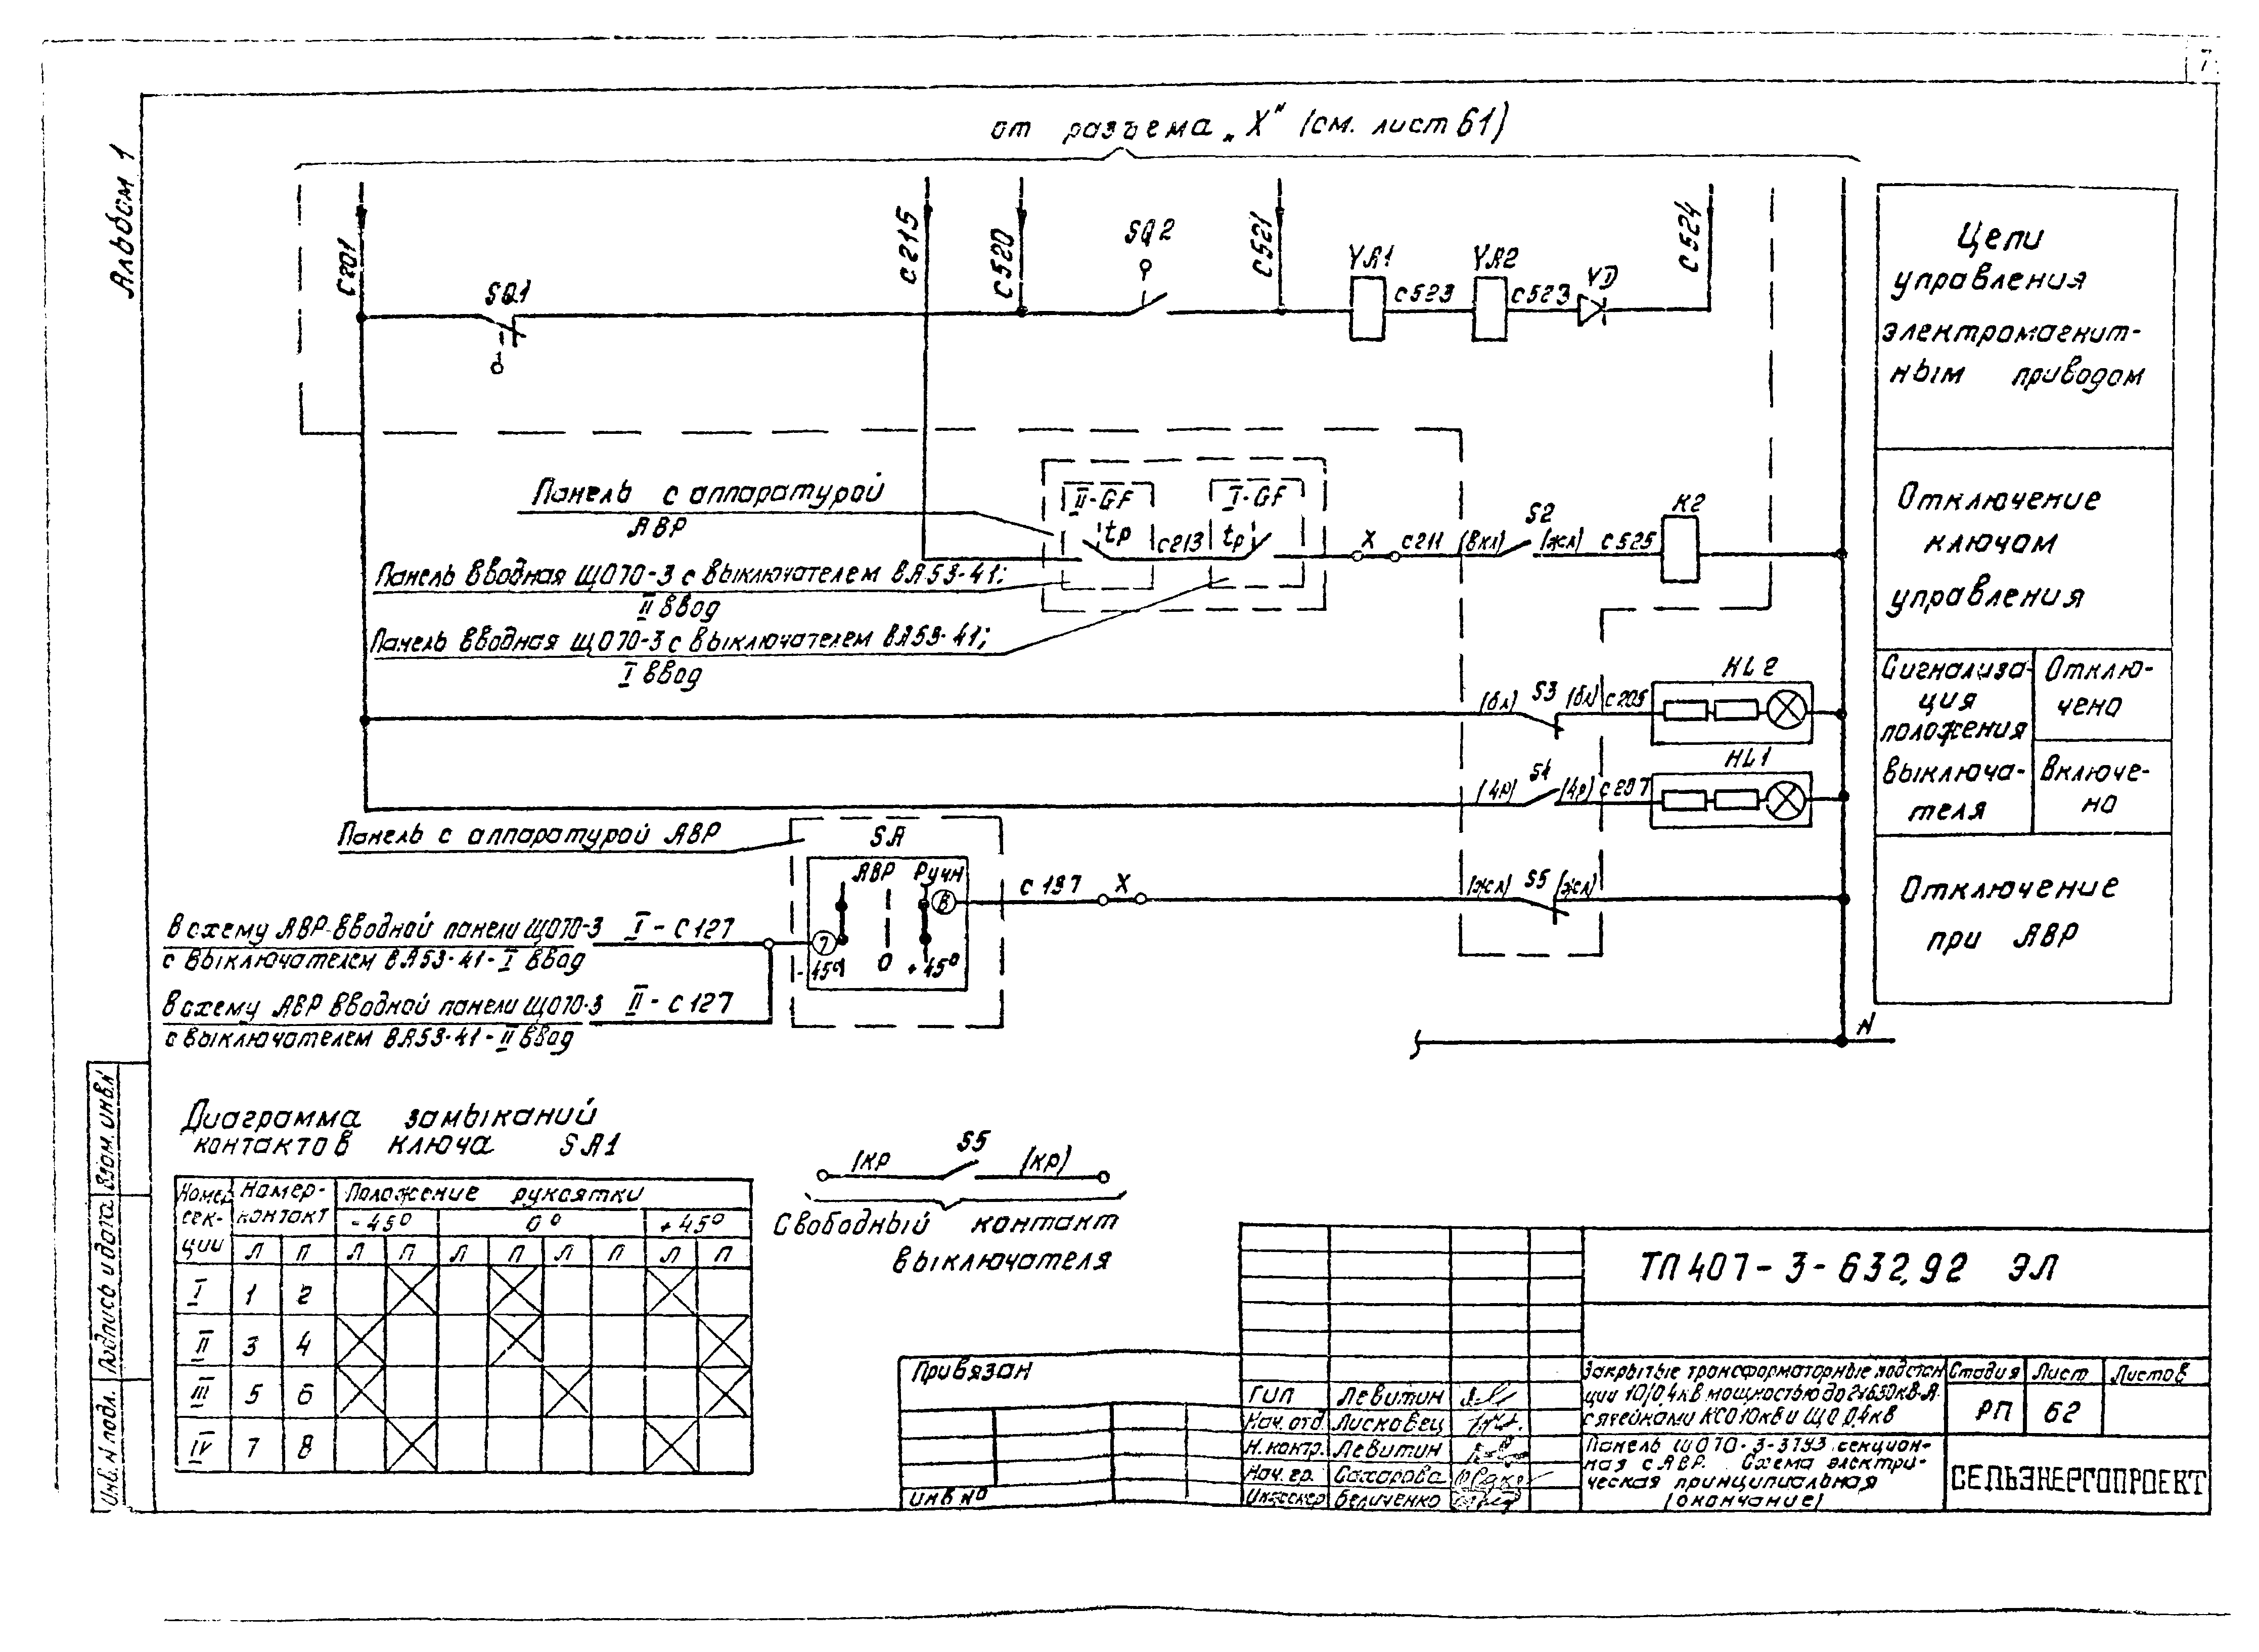 7
Альбом 1
от разъема „X" (см. лист 61)
С201
С215
С520
С521
С524
SQ1
SQ2
YA1
С523
YA2
С523
VD
Цепи
управления
электромагнит-
ным приводом
Панель с аппаратурой
АВР
II-GF
I-GF
tр
С213
tр
X
С211
(вкл)
S2
(жл)
С525
K2
Отключение
ключом
управления
Панель вводная ЩО70-3 с выключателем ВА53-41;
II ввод
Панель вводная ЩО70-3 с выключателем ВА53-41;
I ввод
(бл)
S3
(бл)
С205
HL2
Сигнализа-
ция
положения
выключа-
теля
Отклю-
чено
S4
С207
HL1
Включе-
но
Панель с аппаратурой АВР
SA
АВР
Ручн
8
7
-45°
0
+45°
С197
X
(жл)
S5
(жл)
Отключение
при АВР
В схему АВР вводной панели ЩО70-3
с выключателем ВА53-41-I ввод
I-С127
В схему АВР вводной панели ЩО70-3
с выключателем ВА53-41-II ввод
II-С127
N
Диаграмма замыканий
контактов ключа SA1
Номер сек-ции
Номер контакт
Положение рукоятки
-45°
0°
+45°
Л П Л П Л П Л П Л П
I 1 2
II 3 4
III 5 6
IV 7 8
(кр
S5
(кр)
Свободный контакт
выключателя
ТП 407-3-632.92 ЭЛ
Привязан
ИНВ №
ГИП Левитин
Нач. отд. Лисковец
Н. контр. Левитин
Нач. гр. Сахарова
Инженер Величенко
Закрытые трансформаторные подстан
ции 10/0,4кВ мощностью до 2х630кВ·А
с ячейками КСО 10кВ и ЩО 0,4кВ
Стадия Лист Листов
РП 62
Панель ЩО70-3- секцион-
ная с АВР. Схема электри-
ческая принципиальная
(окончание)
СЕЛЬЭНЕРГОПРОЕКТ
Инв. № подл.
Подпись и дата
Взам. инв. №